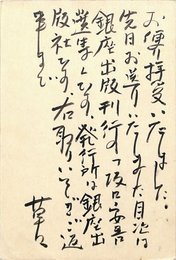 お便拝受いたしました。
先日お送りいたしました目次は
銀座出版社刊行の「坂口安吾
選集」のもの、発行所は銀座出
版社です。右取りいそぎご返
事まで